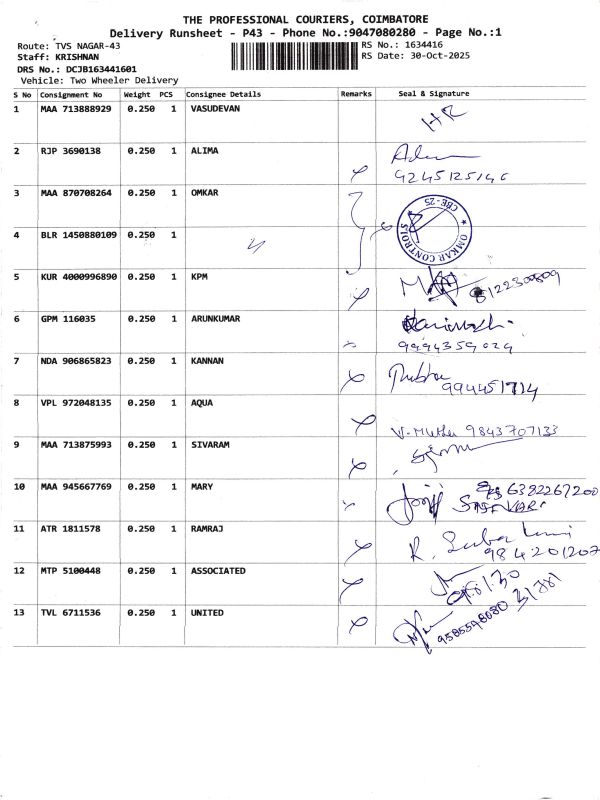 THE PROFESSIONAL COURIERS, COIMBATORE
Delivery Runsheet - P43 - Phone No.:9047080280 - Page No.:1
Route: TVS NAGAR-43 RS No.: 1634416
Staff: KRISHNAN RS Date: 30-Oct-2025
DRS No.: DCJB163441601
Vehicle: Two Wheeler Delivery
S No Consignment No Weight PCS Consignee Details Remarks Seal & Signature
1 MAA 713888929 0.250 1 VASUDEVAN HR
2 RJP 3690138 0.250 1 ALIMA
3 MAA 870708264 0.250 1 OMKAR
OMKAR CONTROLS CBE - 25
4 BLR 1450880109 0.250 1 4
5 KUR 4000996890 0.250 1 KPM
6 GPM 116035 0.250 1 ARUNKUMAR
9994359029
7 NDA 906865823 0.250 1 KANNAN
994451714
8 VPL 972048135 0.250 1 AQUA
V. Muthu 9843707133
9 MAA 713875993 0.250 1 SIVARAM
10 MAA 945667769 0.250 1 MARY 6382267200
11 ATR 1811578 0.250 1 RAMRAJ
984201207
12 MTP 5100448 0.250 1 ASSOCIATED
13 TVL 6711536 0.250 1 UNITED
9585598080